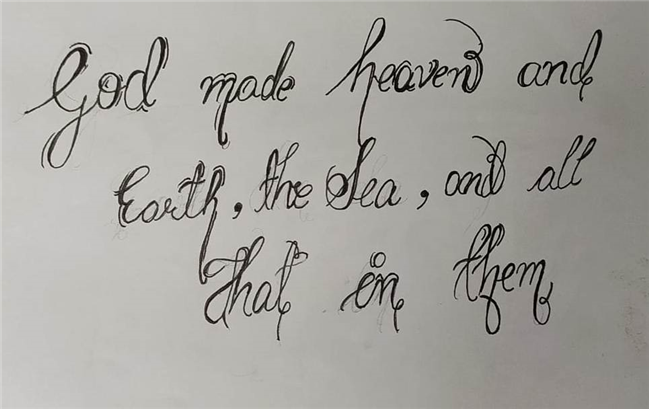 God made heaven and
Earth, the Sea, and all
that in them